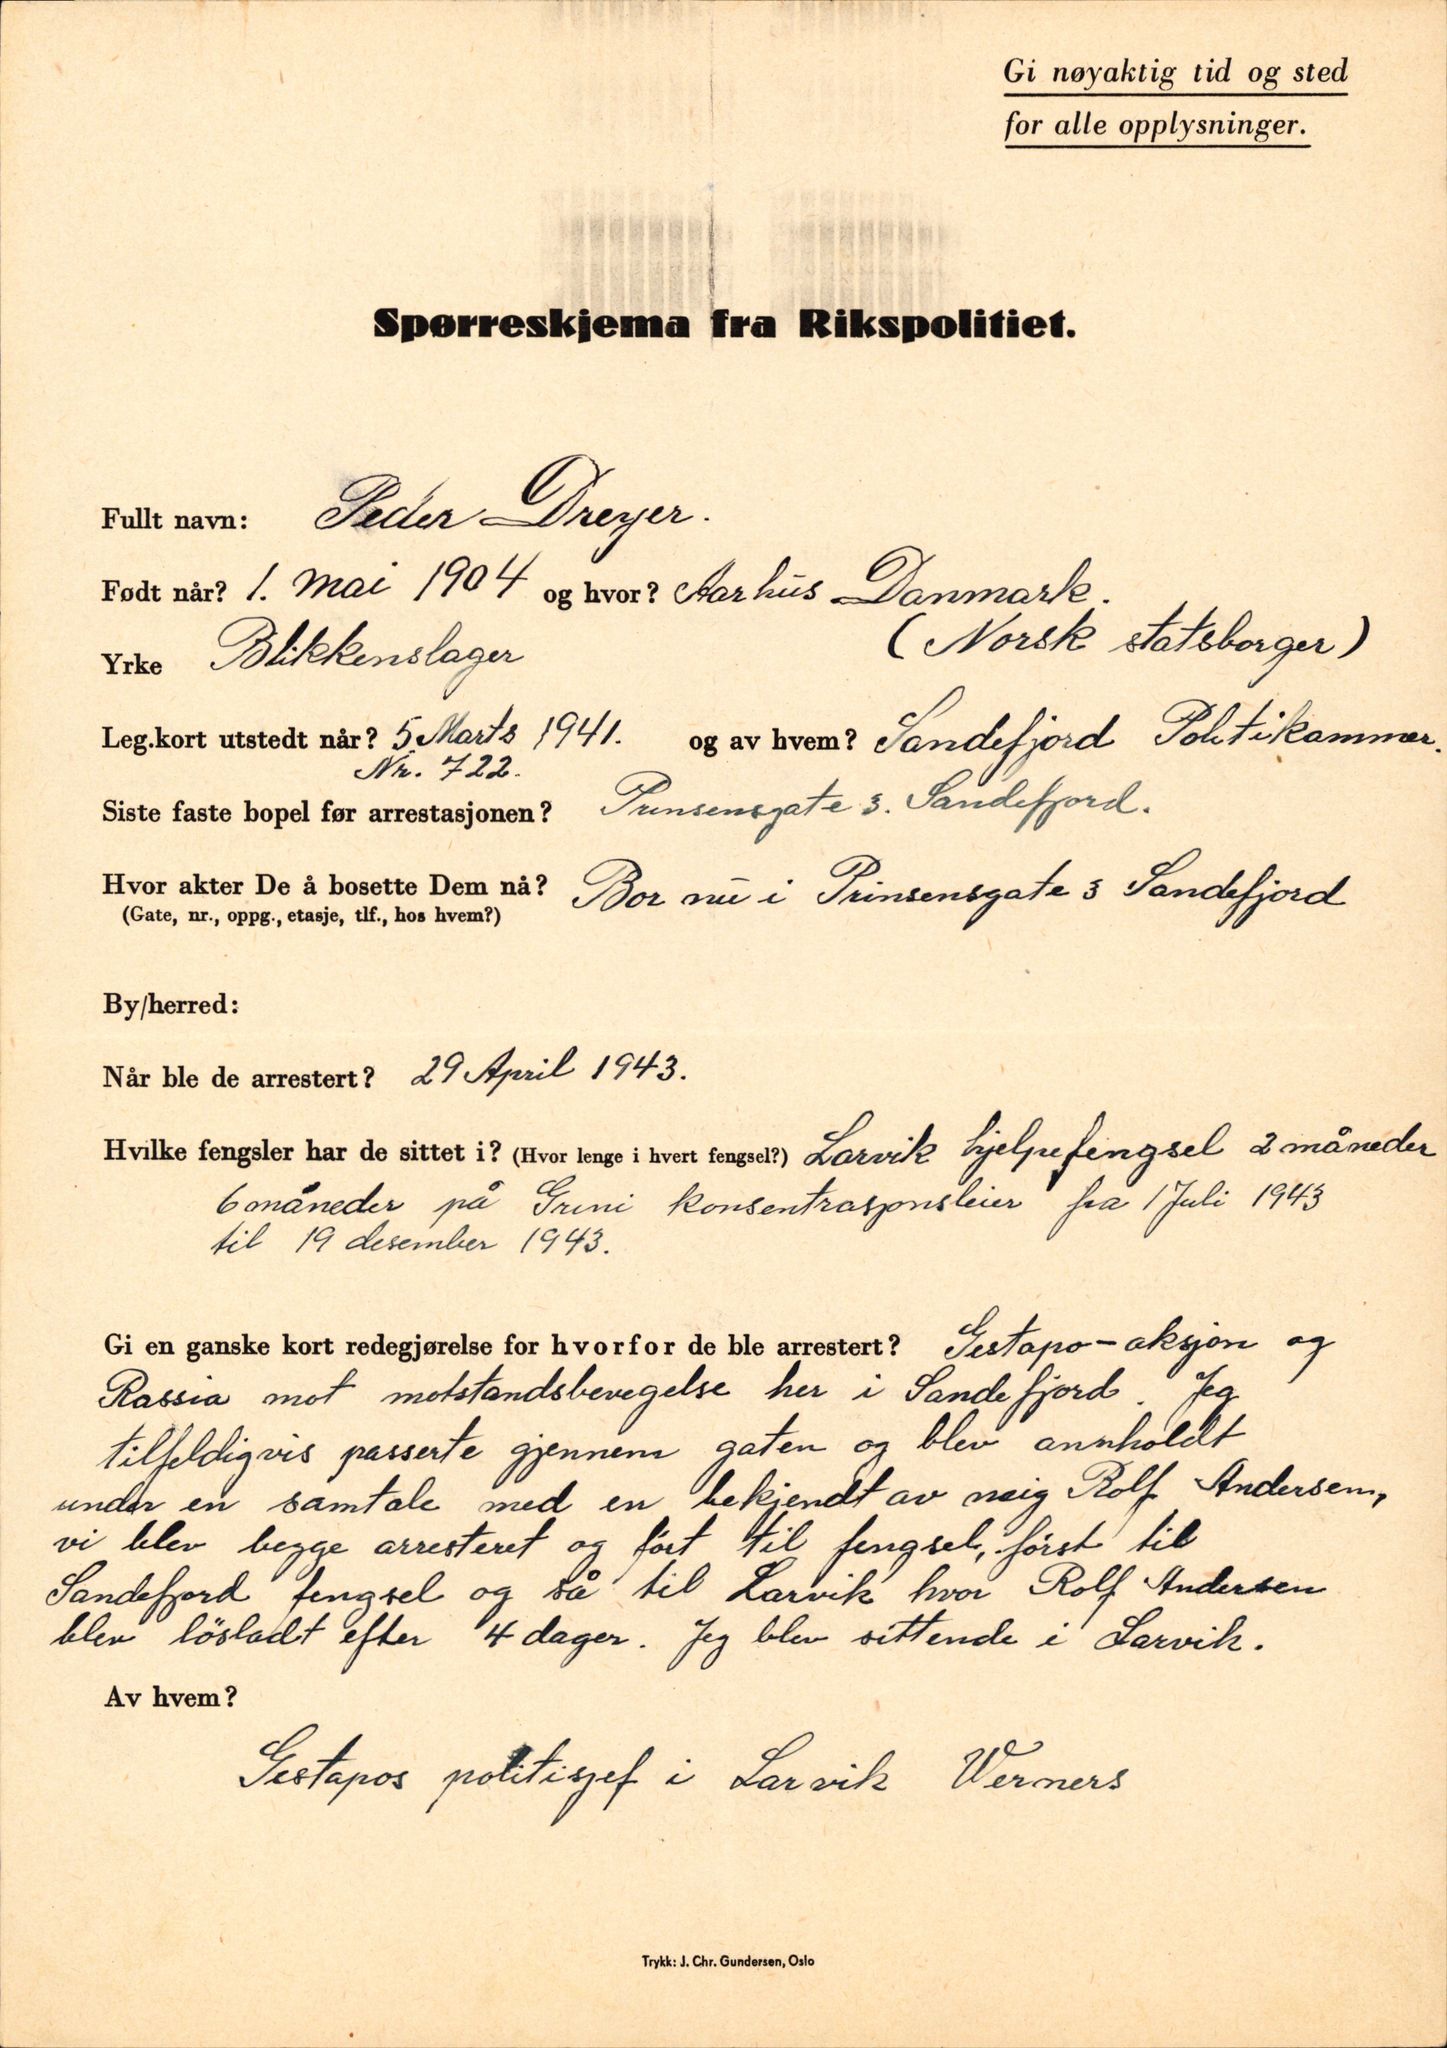 Gi nøyaktig tid og sted
for alle opplysninger.
Spørreskjema fra Rikspolitiet.
Fullt navn: Peder Dreyer.
Født når? 1. Mai 1904 og hvor? Aarhus Danmark.
Yrke Blikkenslager (Norsk statsborger)
Leg.kort utstedt når? 5 Marts 1941. og av hvem? Sandefjord Politikammer.
Nr. 722.
Siste faste bopel før arrestasjonen? Prinsensgate 3. Sandefjord.
Hvor akter De å bosette Dem nå? Bor nu i Prinsensgate 3 Sandefjord
(Gate, nr., oppg., etasje, tlf., hos hvem?)
By/herred:
Når ble de arrestert? 29 April 1943.
Hvilke fengsler har de sittet i? (Hvor lenge i hvert fengsel?) Larvik hjelpefengsel 2 måneder
6 måneder på Grini konsentrasjonsleier fra 1 Juli 1943
til 19 desember 1943.
Gi en ganske kort redegjørelse for hvorfor de ble arrestert? Gestapo-aksjon og
Rassia mot motstandsbevegelse her i Sandefjord. Jeg
tilfeldigvis passerte gjennem gaten og blev annholdt
under en samtale med en bekjendt av meig Rolf Andersen,
vi blev begge arresteret og ført til fengsel, først til
Sandefjord fengsel og så til Larvik hvor Rolf Andersen
blev lösladt efter 4 dager. Jeg blev sittende i Larvik.
Av hvem?
Gestapos politisjef i Larvik Werners
Trykk: J. Chr. Gundersen, Oslo